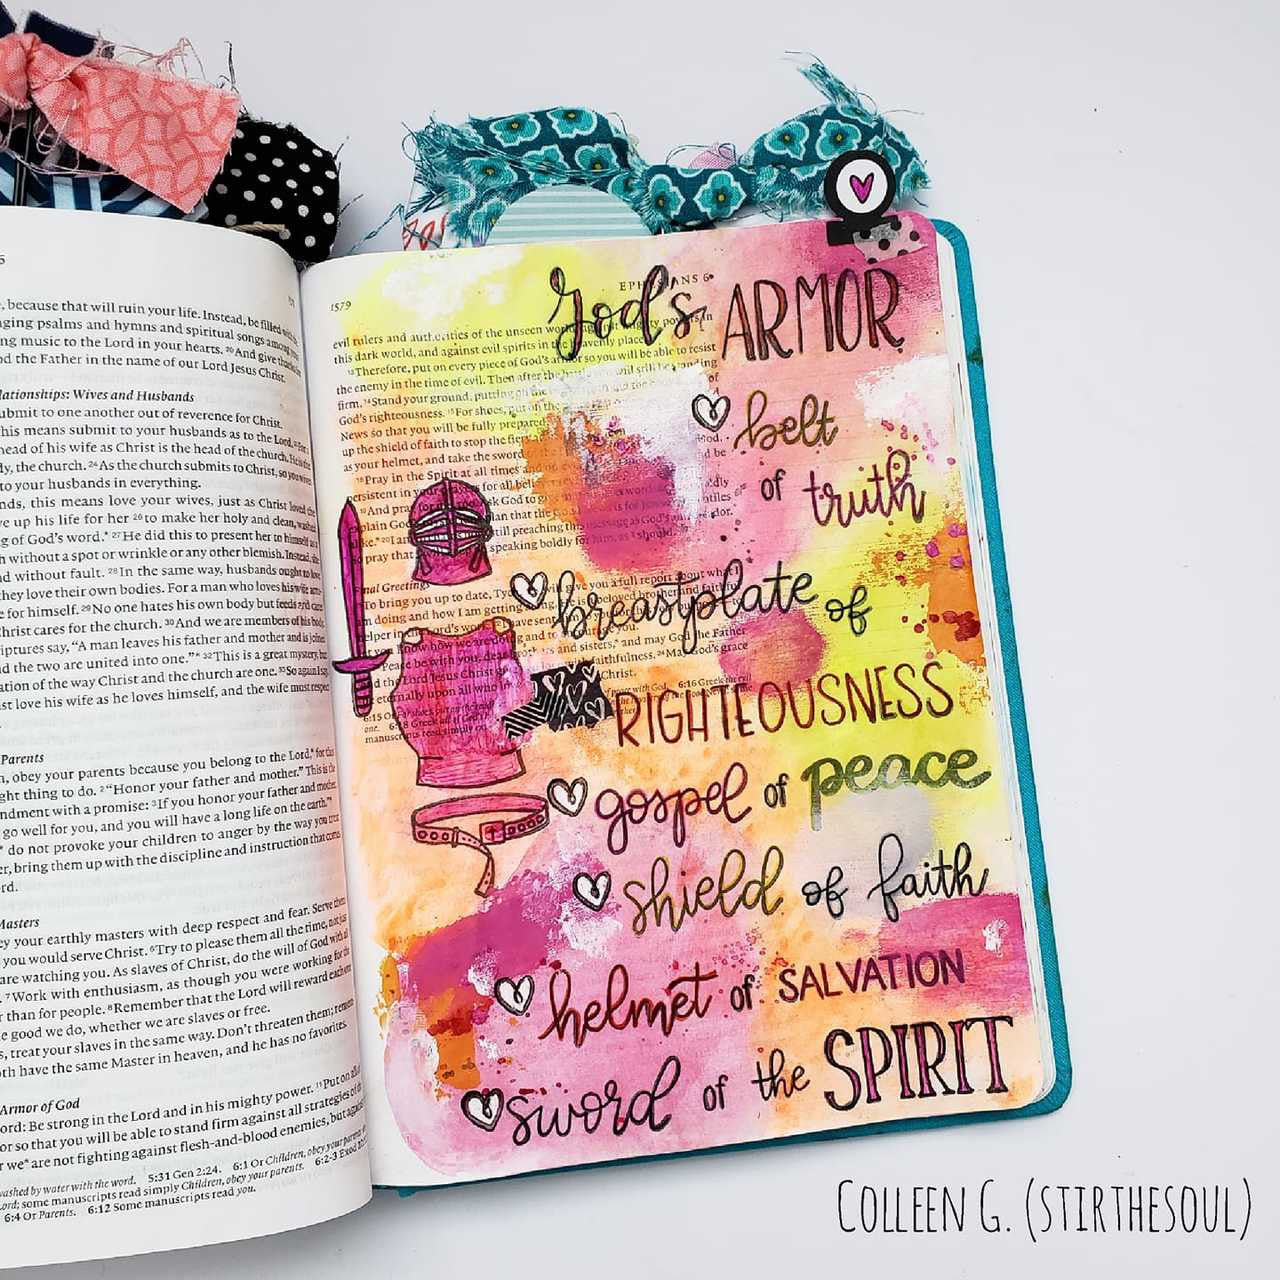 , because that will ruin your life. Instead, be filled with
ging psalms and hymns and spiritual songs among
ng music to the Lord in your hearts. 20And give thanks
od the Father in the name of our Lord Jesus Christ.
lationships: Wives and Husbands
ubmit to one another out of reverence for Christ.
his means submit to your husbands as to the Lord.
head of his wife as Christ is the head of the church.
ly, the church. 24As the church submits to Christ, so
to your husbands in everything.
nds, this means love your wives, just as Christ loved the
ve up his life for her 26to make her holy and clean, washed
g of God's word.* 27He did this to present her to himself as a
h without a spot or wrinkle or any other blemish. Instead, she
nd without fault. 28In the same way, husbands ought to love
they love their own bodies. For a man who loves his wife
e for himself. 29No one hates his own body but feeds and cares
Christ cares for the church. 30And we are members of his body.
riptures say, "A man leaves his father and mother and is joined
d the two are united into one."* 32This is a great mystery, but
ation of the way Christ and the church are one. 33So again I say,
st love his wife as he loves himself, and the wife must respect
Parents
n, obey your parents because you belong to the Lord,* for this
ght thing to do. 2"Honor your father and mother." This is the
ndment with a promise: 3If you honor your father and mother,
go well for you, and you will have a long life on the earth."*
do not provoke your children to anger by the way you treat
er, bring them up with the discipline and instruction that comes
rd.
Masters
ey your earthly masters with deep respect and fear. Serve them
you would serve Christ. 6Try to please them all the time, not just
are watching you. As slaves of Christ, do the will of God with all
7Work with enthusiasm, as though you were working for the
r than for people. 8Remember that the Lord will reward each one
e good we do, whether we are slaves or free.
s, treat your slaves in the same way. Don't threaten them; remem
oth have the same Master in heaven, and he has no favorites.
Armor of God
ord: Be strong in the Lord and in his mighty power. 11Put on all of
or so that you will be able to stand firm against all strategies of the
r we* are not fighting against flesh-and-blood enemies, but against
washed by water with the word. 5:31 Gen 2:24. 6:1 Or Children, obey your parents
Lord; some manuscripts read simply Children, obey your parents. 6:2-3 Exod
6:4 Or Parents. 6:12 Some manuscripts read you.
1579
EPHESIANS 6
God's ARMOR
evil rulers and authorities of the unseen world, against mighty powers in
this dark world, and against evil spirits in the heavenly places.
13Therefore, put on every piece of God's armor so you will be able to resist
the enemy in the time of evil. Then after the battle you will still be standing
firm. 14Stand your ground, putting on the
God's righteousness. 15For shoes, put on the
News so that you will be fully prepared.
up the shield of faith to stop the fiery
as your helmet, and take the sword of
18Pray in the Spirit at all times and on
persistent in your prayers for all
19And pray for me, too. Ask God to
explain God's
still preaching this message as God's
so pray that
speaking boldly for him, as I should.
Final Greetings
To bring you up to date, Ty
will give you a full report about what I
am doing and how I am getting along.
beloved brother and faithful
helper in the Lord's work.
you know how we are doing and to encourage you.
Peace be with you, dear brothers and sisters,* and may God the Father
and the Lord Jesus Christ
faithfulness. 24May God's grace
be eternally upon all who
Christ.
belt
of truth
breastplate of
RIGHTEOUSNESS
gospel of peace
shield of faith
helmet of SALVATION
sword of the SPIRIT
COLLEEN G. (STIRTHESOUL)